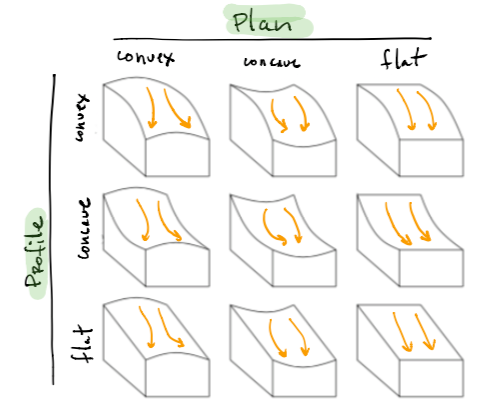 Plan
convex
concave
flat
Profile
convex
concave
flat